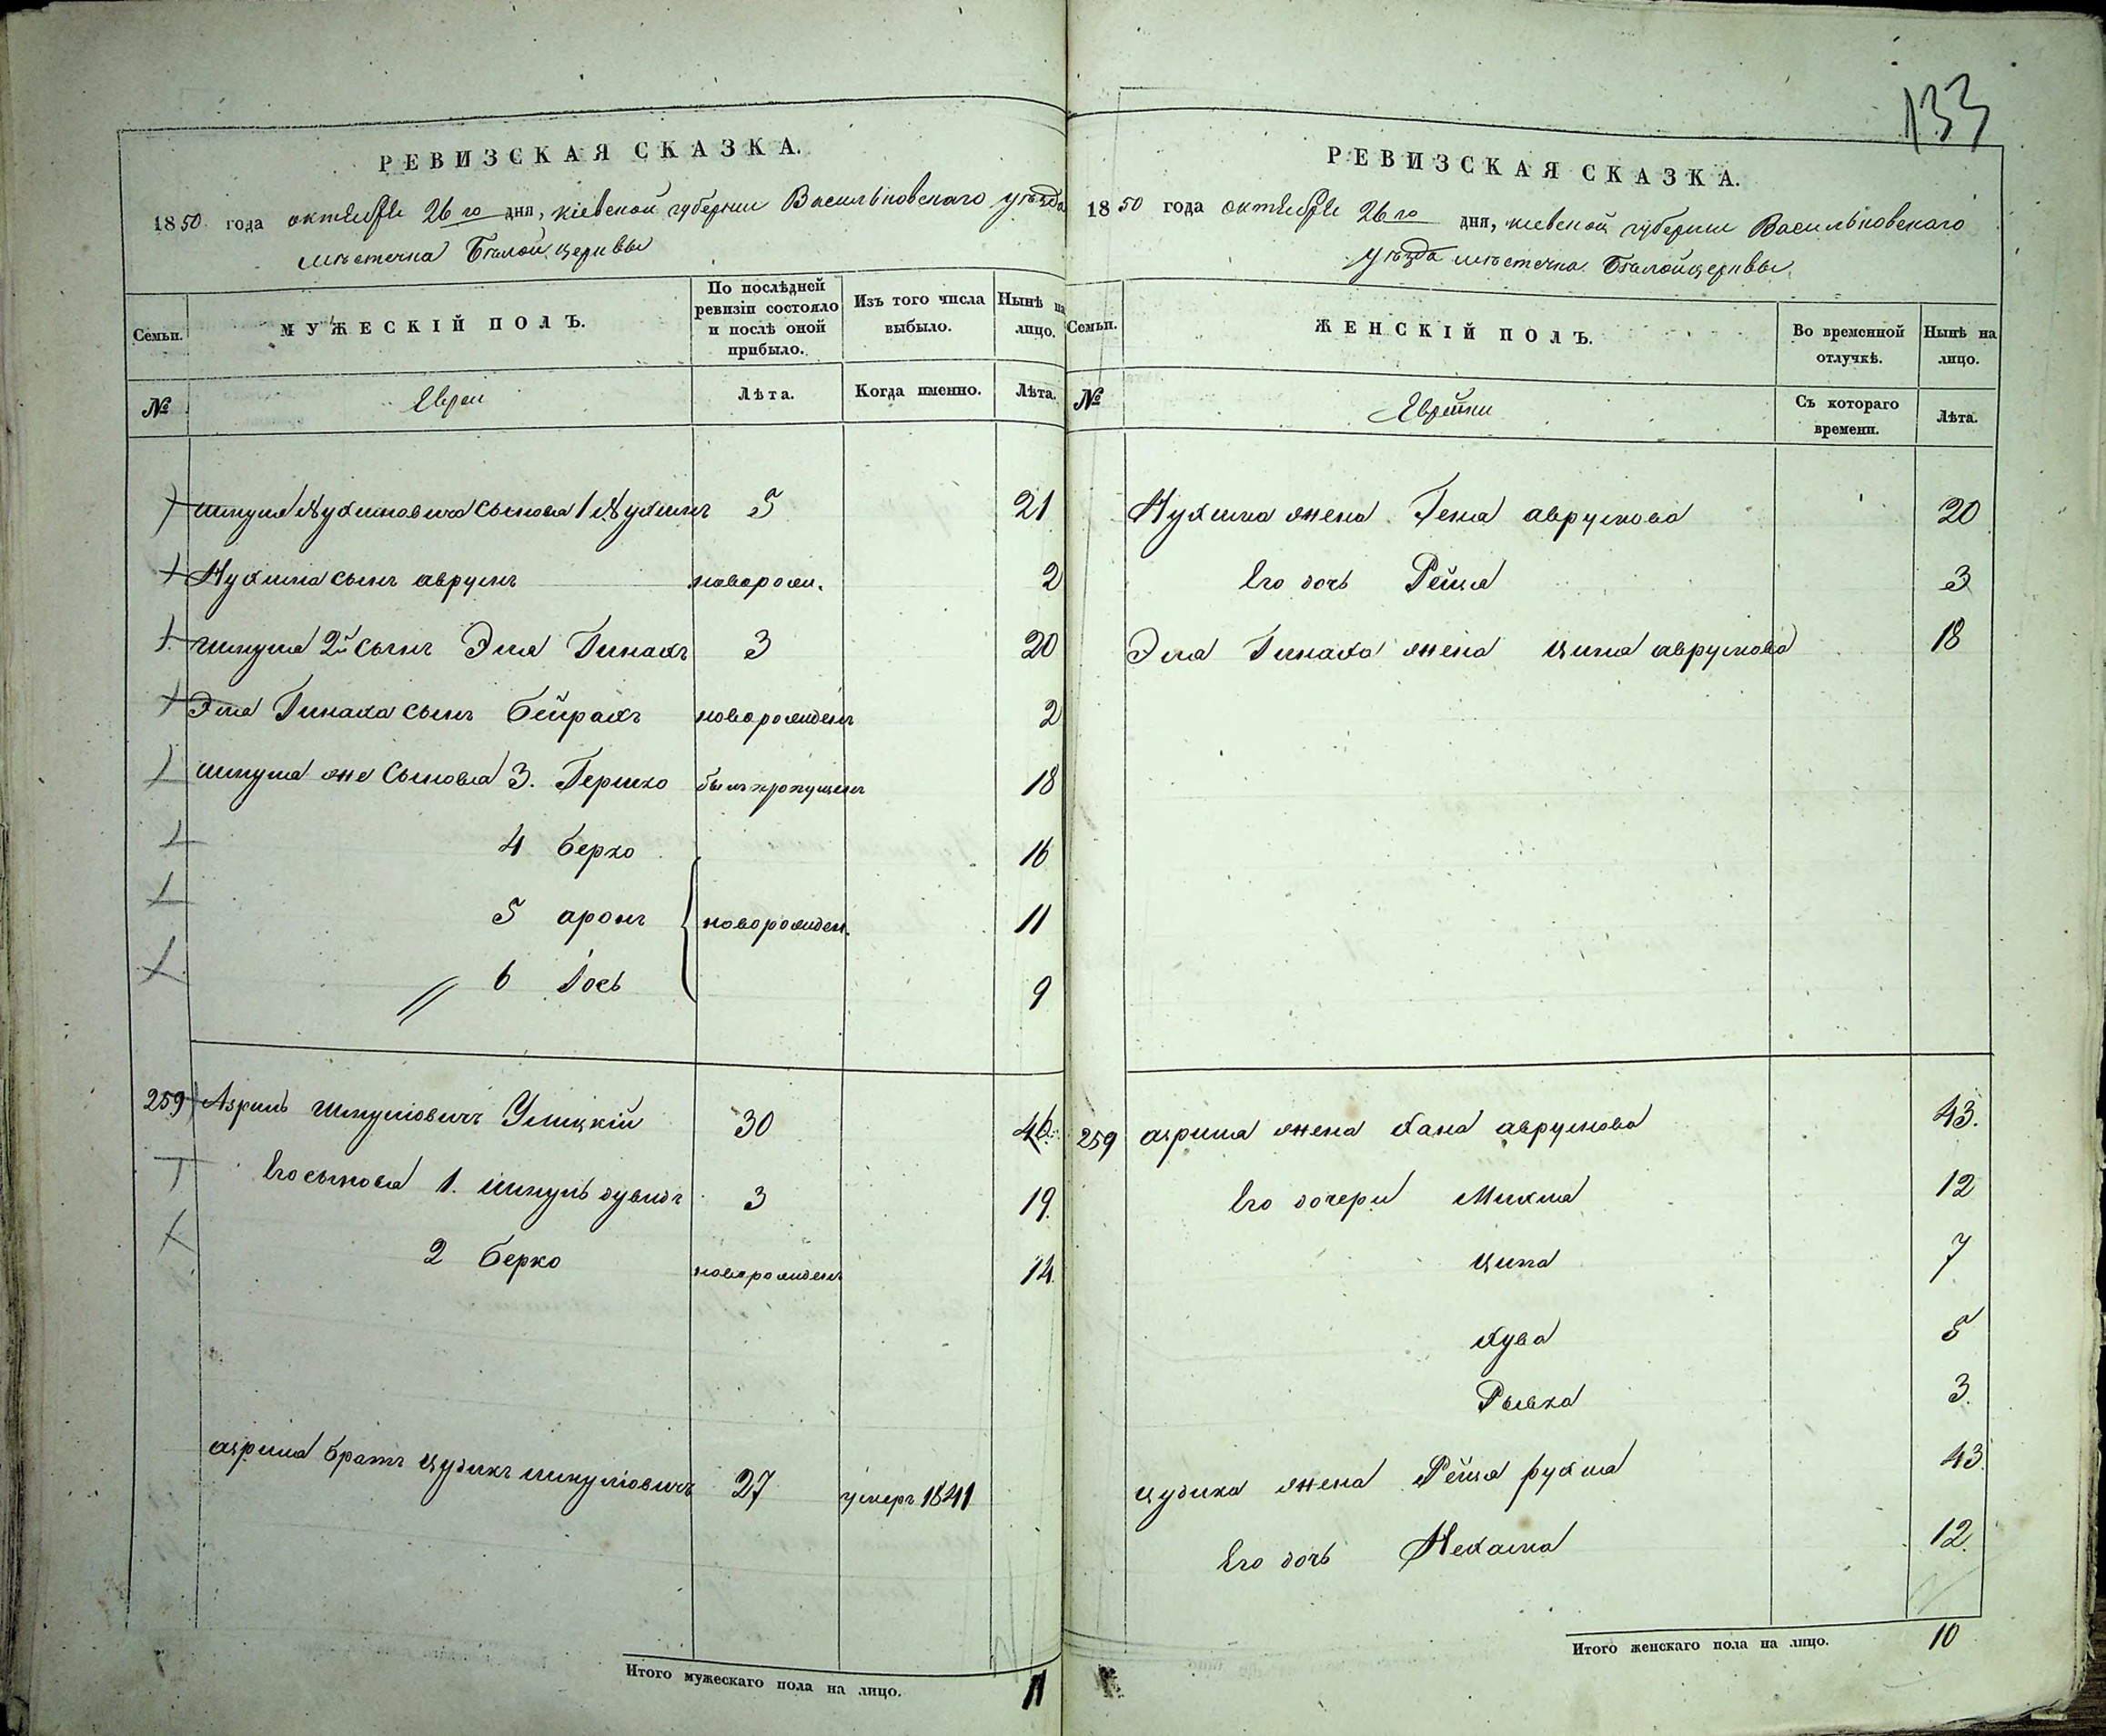 133
РЕВИЗСКАЯ СКАЗКА.
1850 года октября 26го дня, Кіевской губерніи Васильковскаго уѣзда
мѣстечка Бѣлой церквы
Семьи.
МУЖЕСКІЙ ПОЛЪ.
По послѣдней ревизіи состояло и послѣ оной прибыло.
Изъ того числа выбыло.
Нынѣ на лицо.
№
Евреи
Лѣта.
Когда именно.
Лѣта.
Шмуля Нухимовича сыновья 1 Нухимъ 5 21
Нухима сынъ аврумъ новорожд. 2
Шмуля 2й сынъ Эля Пинахъ 3 20
Эля Пинаха сынъ Бейрахъ новорожденъ 2
Шмуля же сыновья 3. Гершко былъ пропущенъ 18
4 Берко 16
5 аронъ новорожден. 11
6 Іось 9
259 Азриль Шмуліовичъ Улицкій 30 46
Его сыновья 1. Шмуль дувидъ 3 19.
2 Берко новорожденъ 14
азриля братъ Цудикъ шмуліовичъ 27 умеръ 1841
Итого мужескаго пола на лицо. 11
РЕВИЗСКАЯ СКАЗКА.
1850 года октября 26го дня, Кіевской губерніи Васильковскаго
уѣзда мѣстечка Бѣлойцерквы.
Семьи.
ЖЕНСКІЙ ПОЛЪ.
Во временной отлучкѣ.
Нынѣ на лицо.
№
Еврейки
Съ котораго времени.
Лѣта.
Нухима жена Геня аврумова 20
Его дочь Рейзя 3
Эля Пинаха жена Ципа аврумова 18
259 азриля жена Хана аврумова 43.
Его дочери Михля 12
Ципа 7
Хува 5
Рывка 3.
Цудика жена Рейзя рухля 43
Его дочь Нехама 12.
Итого женскаго пола на лицо. 10